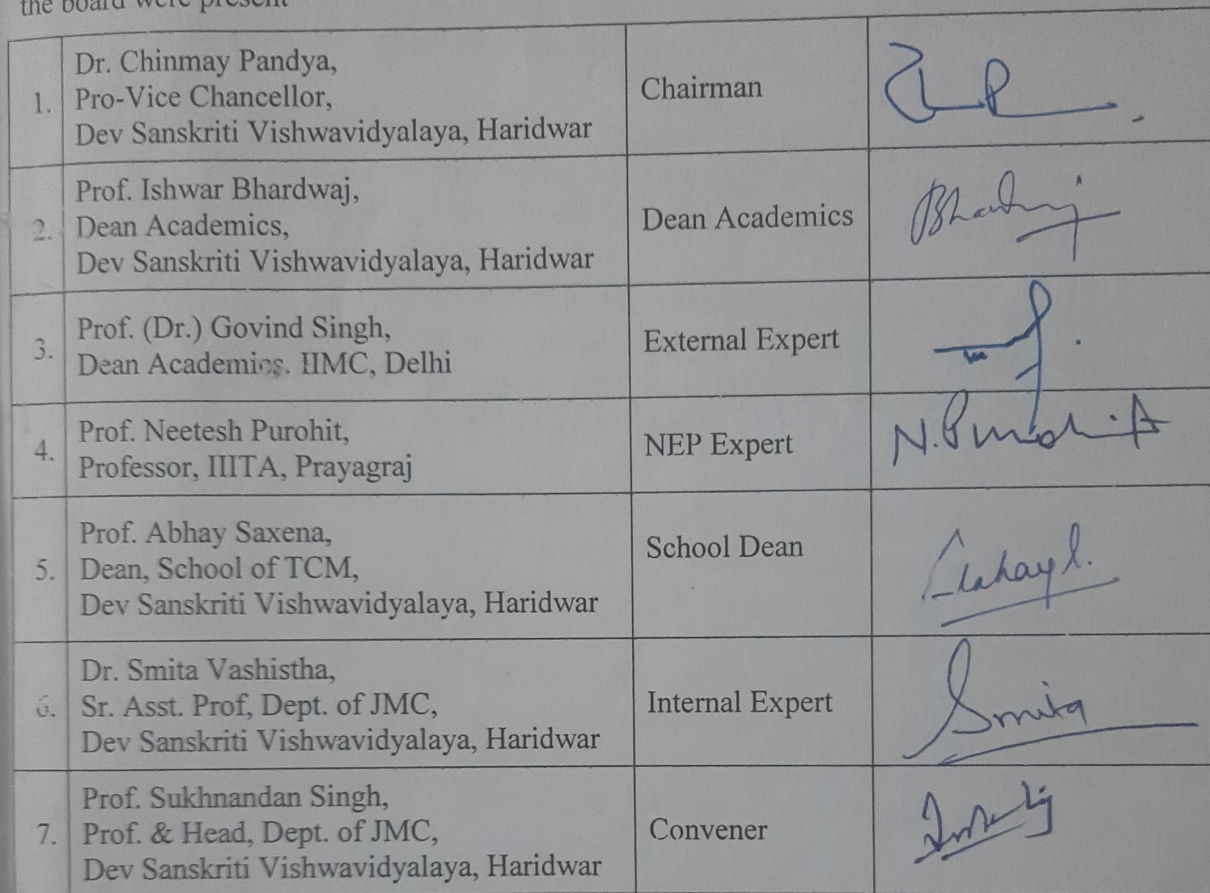 the board were present
1.
Dr. Chinmay Pandya,
Pro-Vice Chancellor,
Dev Sanskriti Vishwavidyalaya, Haridwar
Chairman
2.
Prof. Ishwar Bhardwaj,
Dean Academics,
Dev Sanskriti Vishwavidyalaya, Haridwar
Dean Academics
Bhardwaj
3.
Prof. (Dr.) Govind Singh,
Dean Academics. IIMC, Delhi
External Expert
4.
Prof. Neetesh Purohit,
Professor, IIITA, Prayagraj
NEP Expert
N. Purohit
5.
Prof. Abhay Saxena,
Dean, School of TCM,
Dev Sanskriti Vishwavidyalaya, Haridwar
School Dean
6.
Dr. Smita Vashistha,
Sr. Asst. Prof, Dept. of JMC,
Dev Sanskriti Vishwavidyalaya, Haridwar
Internal Expert
Smita
7.
Prof. Sukhnandan Singh,
Prof. & Head, Dept. of JMC,
Dev Sanskriti Vishwavidyalaya, Haridwar
Convener